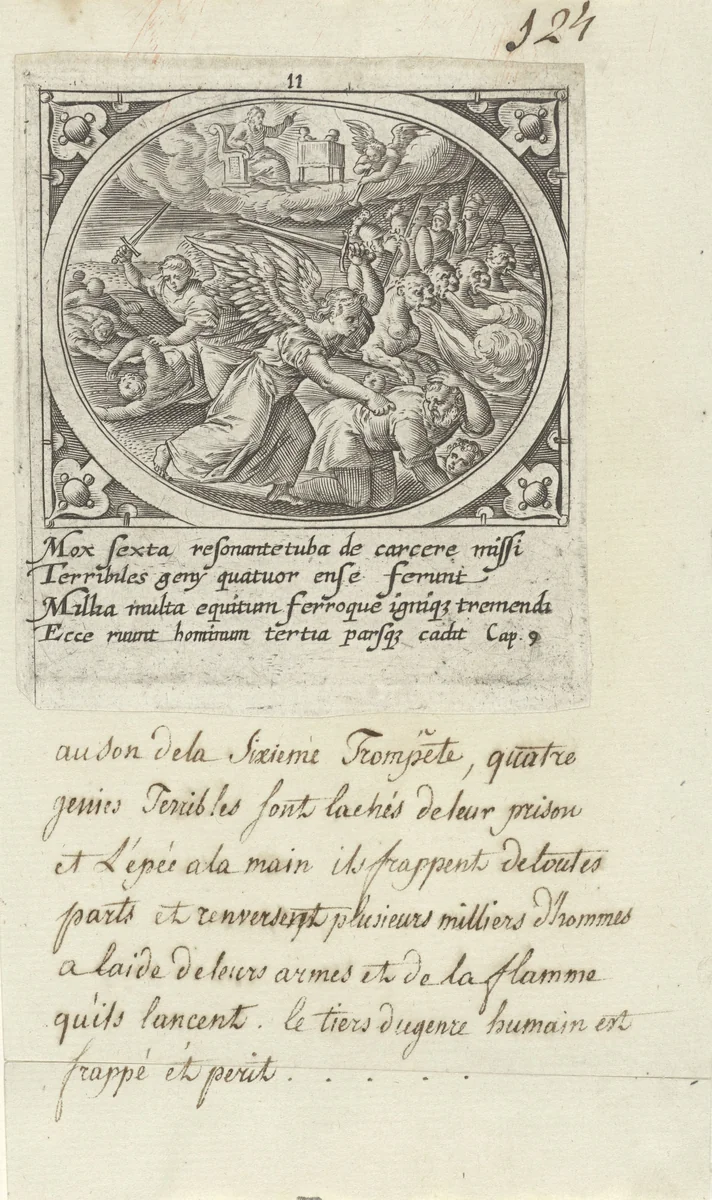 124
11
Mox sexta resonante tuba de carcere missi
Terribiles genÿ quatuor ense ferunt
Millia multa equitum ferroque igniqz tremendi
Ecce ruunt hominum tertia parsqz cadit Cap. 9
au son de la Sixieme Trompëte, quatre
genies Terribles sont lachés de leur prison
et L'épée a la main ils frappent de toutes
parts et renversent plusieurs milliers d'hommes
a laide de leurs armes et de la flamme
qu'ils lancent. le tiers du genre humain est
frappé et perit . . . . .